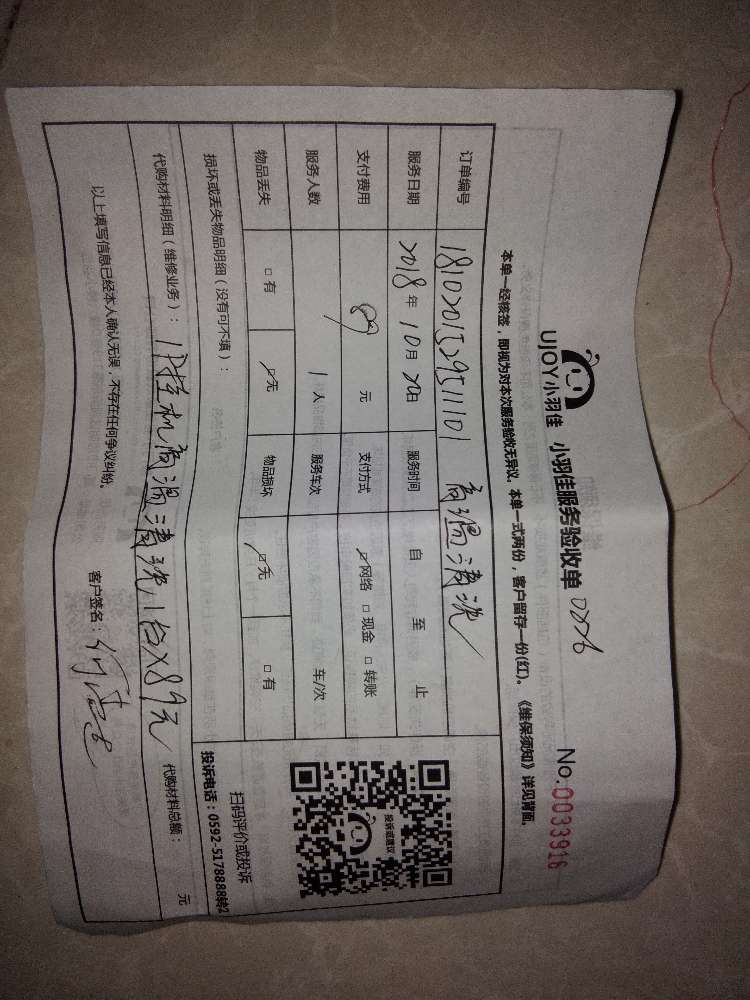 UJOY小羽佳 小羽佳服务验收单 No.0033916
本单一经核签，即视为对本次服务验收无异议，本单一式两份，客户留存一份(红)。《维保须知》详见背面。
订单编号 181020152951101 高温清洗
服务日期 2018年10月20日 服务时间 自 至 止
支付费用 89元 支付方式 ☑网络 □现金 □转账
服务人数 1人 服务车次 车/次
物品丢失 □有 ☑无 物品损坏 ☑无 □有
损坏或丢失物品明细（没有可不填）：
代购材料明细（维修业务）： 高温清洗1台×89元 代购材料总额： 元
以上填写信息已经本人确认无误，不存在任何争议纠纷。 客户签名：
投诉或建议
扫码评价或投诉
投诉电话：0592-5178888转2